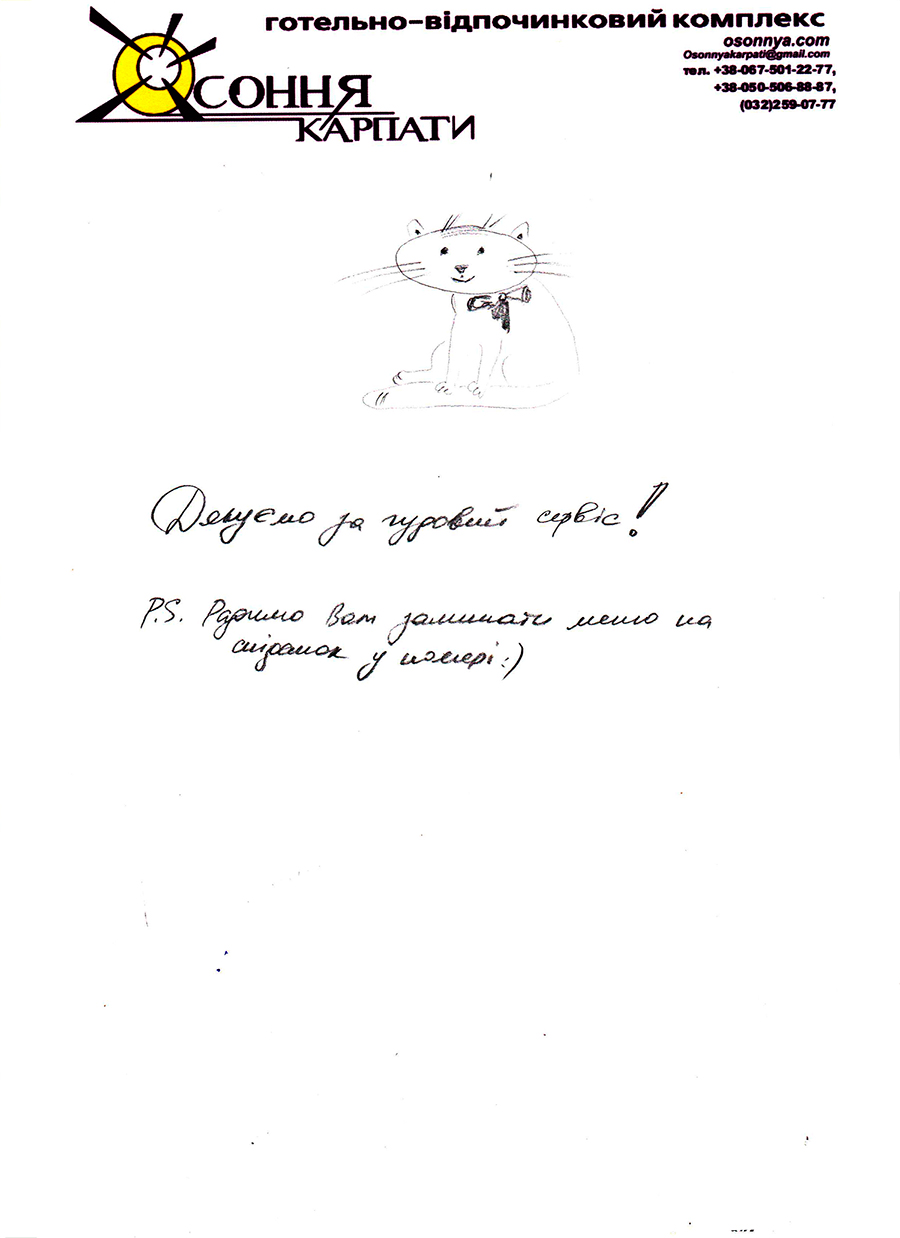 готельно-відпочинковий комплекс
osonnya.com
Osonnyakarpati@gmail.com
тел. +38-067-501-22-77,
+38-050-506-88-87,
(032)259-07-77
Осоння
Карпати
Дякуємо за чудовий сервіс!
P.S. Радимо Вам залишати меню на
сніданок у номері :)